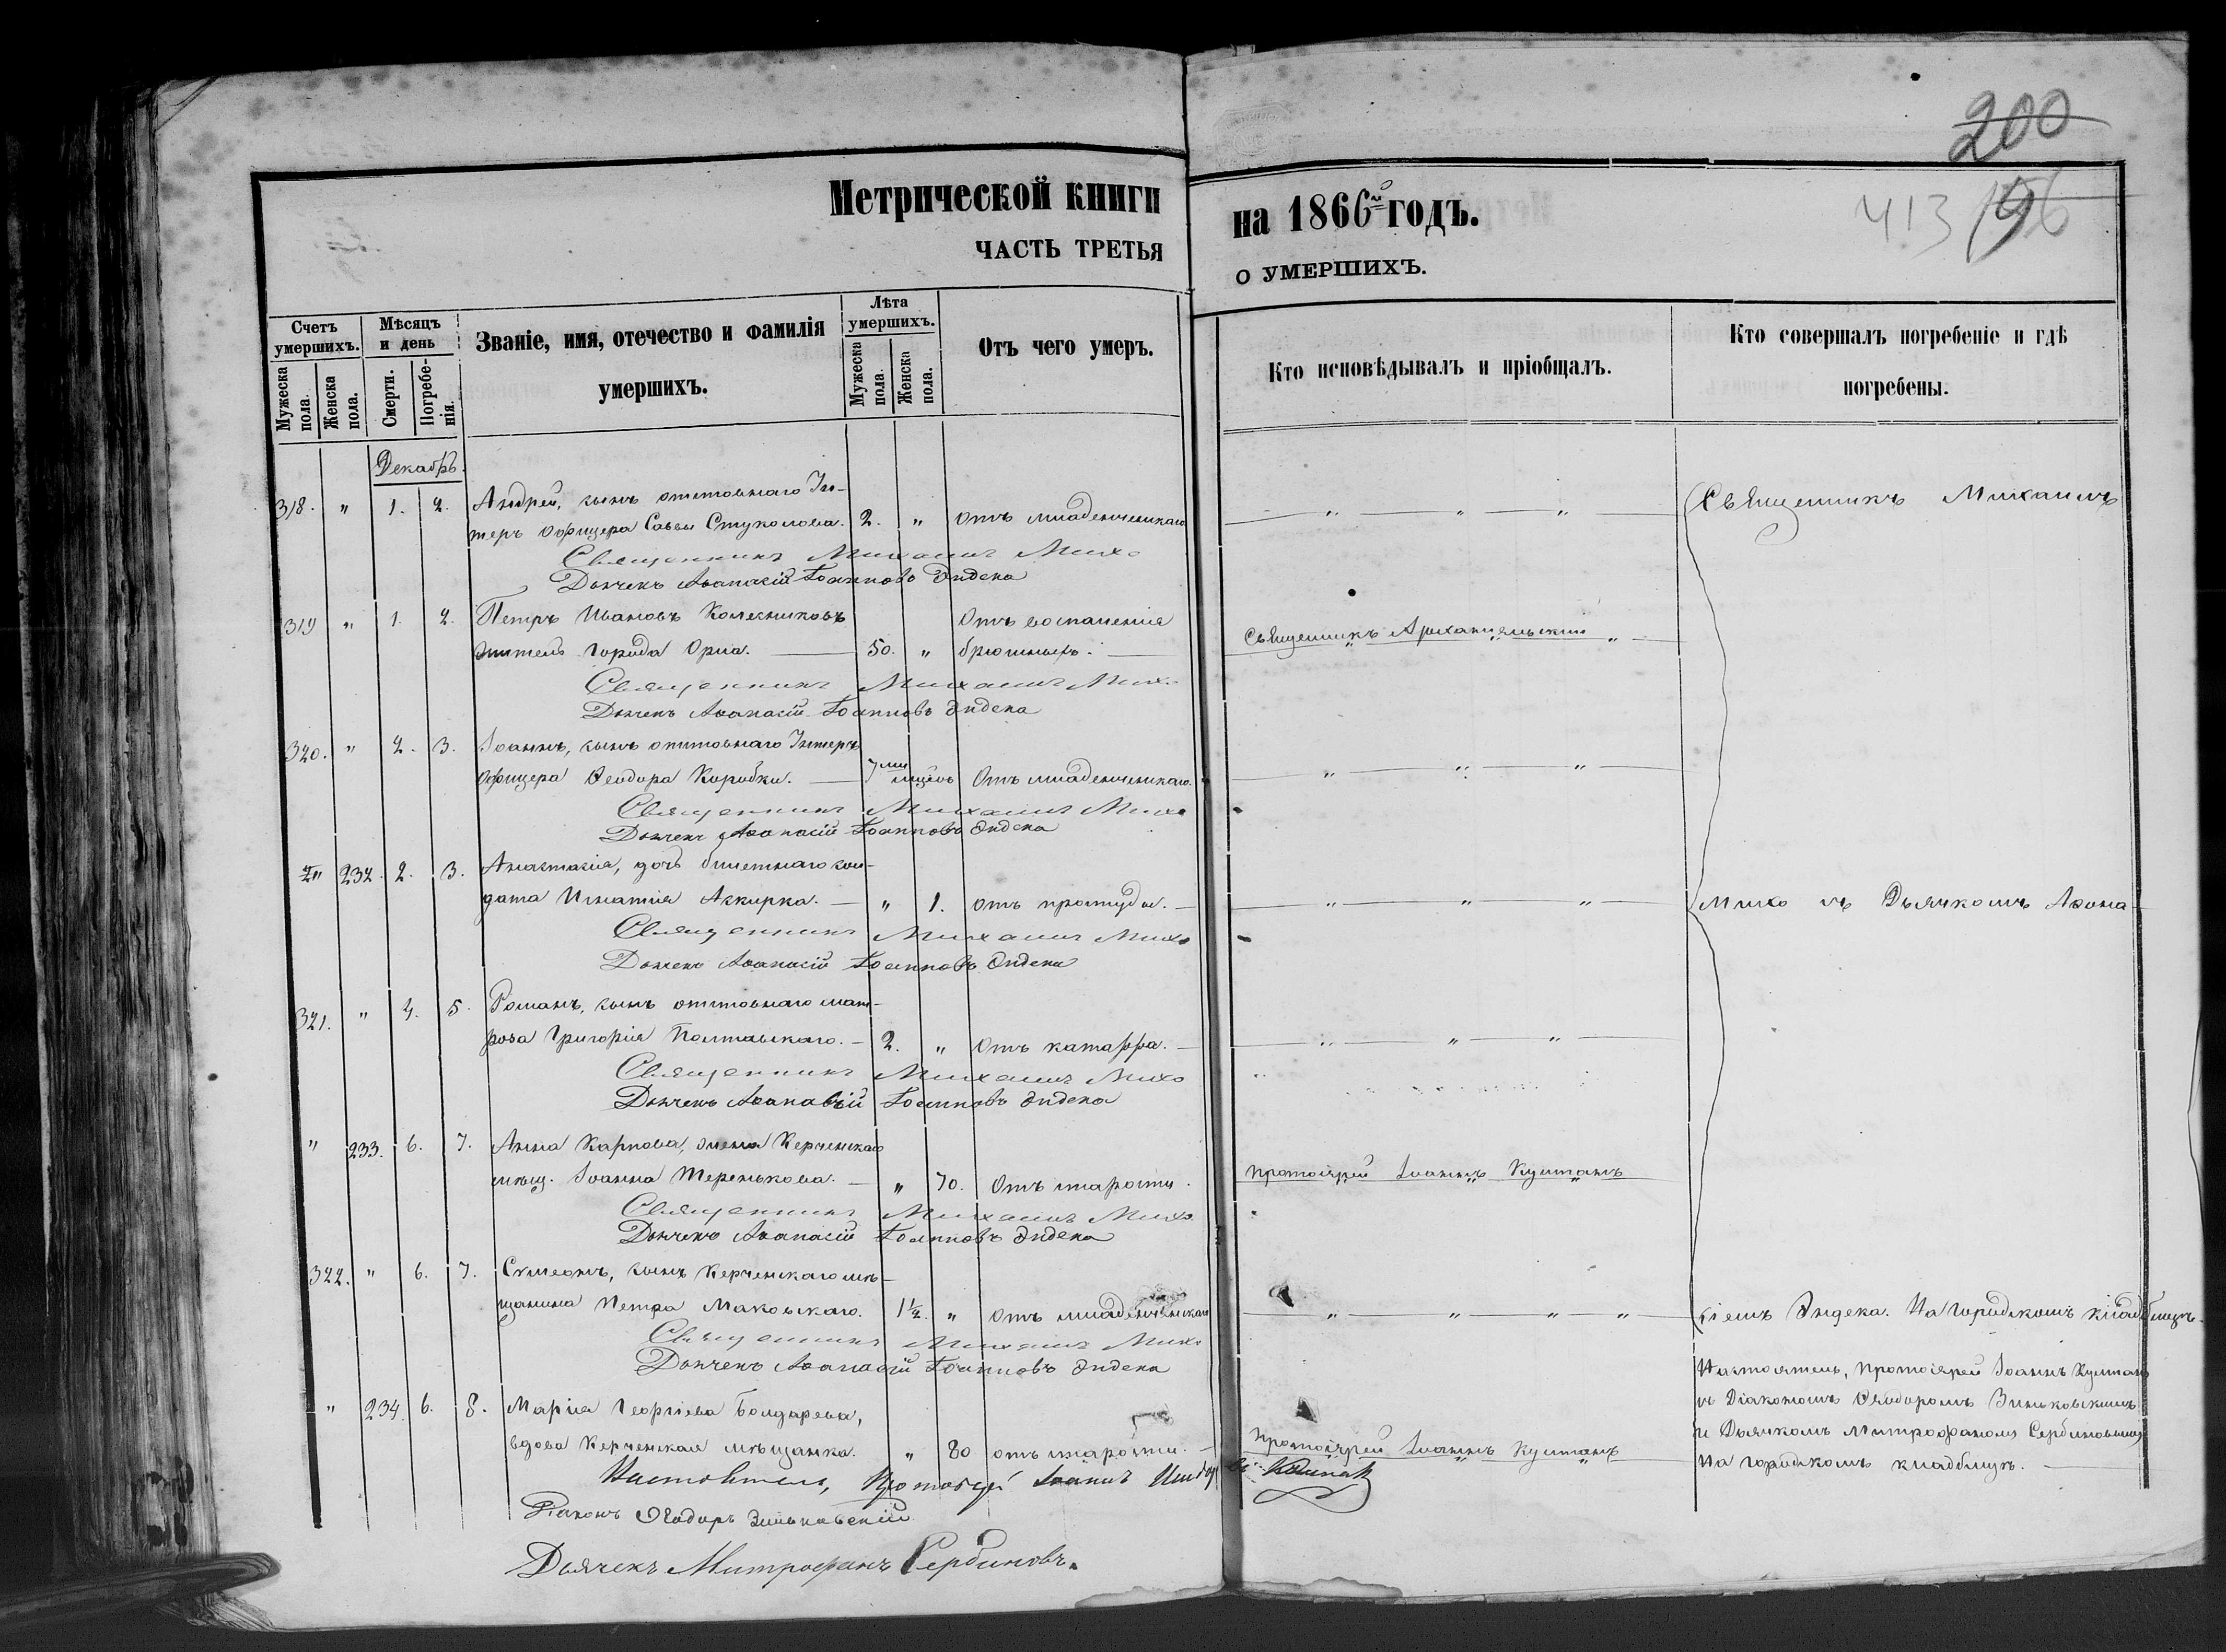 200
413
196
Метрической книги на 1866й годъ.
ЧАСТЬ ТРЕТЬЯ О УМЕРШИХЪ.
Счетъ умершихъ.
Мужеска пола.
Женска пола.
Мѣсяцъ и день
Смерти.
Погребенія.
Званіе, имя, отечество и фамилія умершихъ.
Лѣта умершихъ.
Мужеска пола.
Женска пола.
Отъ чего умеръ.
Кто исповѣдывалъ и пріобщалъ.
Кто совершалъ погребеніе и гдѣ погребены.
Декабрь.
318. " 1. 2. Андрей, сынъ отставнаго Ун-
теръ офицера Саввы Стуколова. 2. " отъ младенческаго " " " Священникъ Михаилъ
Священникъ Михаилъ Михо
Дьячекъ Аѳанасій Іоанновъ Эндека
319 " 1. 2. Петръ Ивановъ Колесниковъ Отъ воспаленія
житель города Орла. 50. " брюшныхъ. Священникъ Архангельскій
Священникъ Михаилъ Михо
Дьячекъ Аѳанасій Іоанновъ Эндека
320. " 2. 3. Іоаннъ, сынъ отставнаго Унтеръ
офицера Ѳеодора Коробки. 7ми мцевъ Отъ младенческаго. " " "
Священникъ Михаилъ Михо
Дьячекъ Аѳанасій Іоанновъ Эндека
" 232. 2. 3. Анастасія, дочь билетнаго сол-
дата Игнатія " 1. отъ простуды. " " " Михо съ Дьячкомъ Аѳана-
Священникъ Михаилъ Михо
Дьячекъ Аѳанасій Іоанновъ Эндека
321. " 4. 5. Романъ, сынъ отставнаго мат-
роса Григорія Полтавскаго. 2. " Отъ катарра. " " "
Священникъ Михаилъ Михо
Дьячекъ Аѳанасій Іоанновъ Эндека
" 233. 6. 7. Анна Карпова, жена Керченскаго
мѣщ. Іоанна Теренькова. " 70. Отъ старости. Протоіерей Іоаннъ Кумпанъ
Священникъ Михаилъ Михо
Дьячекъ Аѳанасій Іоанновъ Эндека
322. " 6. 7. Сѵмеонъ, сынъ Керченскаго мѣ-
щанина Петра Маковскаго. 1½. " Отъ младенческаго " " " " сіемъ Эндека. На городскомъ кладбищѣ.
Священникъ Михаилъ Михо
Дьячекъ Аѳанасій Іоанновъ Эндека
" 234. 6. 8. Марія Георгіева Бондарева,
вдова Керченская мѣщанка. " 80 отъ старости. Протоіерей Іоаннъ Кумпанъ
Настоятель, Протоіерей Іоаннъ Кумпанъ
съ Діакономъ Ѳеодоромъ Зиньковскимъ
и Дьячкомъ Митрофаномъ Сербиновымъ
На городскомъ кладбищѣ.
Настоятель, Протоіерей Іоаннъ
Діаконъ Ѳеодоръ Зиньковскій
Дьячекъ Митрофанъ Сербиновъ.